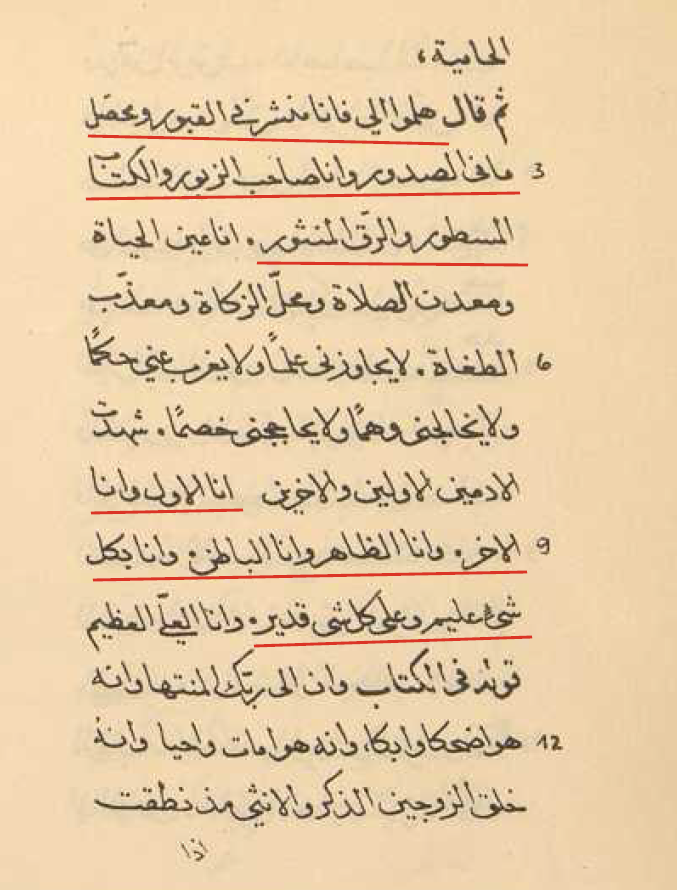 الحامية،
ثم قال هلموا الي فانا منشر في القبور ومحصّل
3 ما في الصدور وانا صاحب الزبور والكتاب
المسطور والرقّ المنثور. انا عين الحياة
ومعدن الصلاة ومحلّ الزكاة ومعذّب
6 الطغاة. لا يجاوزنى علمًا ولا يغرب عني حكمًا
ولا يخالجنى وهمًا ولا يحاججنى خصمًا. شهدتّ
الادمين الاولين والاخرين انا الاول وانا
9 الاخر. وانا الظاهر وانا الباطن. وانا بكل
شيء عليم وعلى كل شى قدير. وانا العليّ العظيم
قوله في الكتاب وان الى ربّك المنتها وانه
12 هو اضحكا وابكا، وانه هو امات واحيا وانهُ
خلق الزوجين الذكر والانثى مذ نطقت
اذا